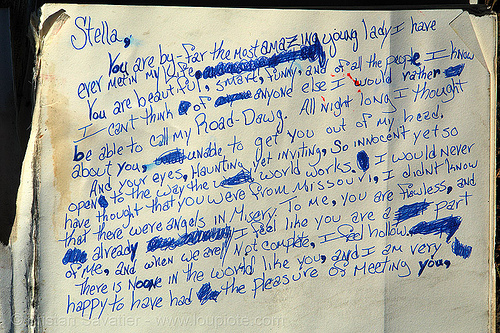 Stella,
You are by-far the most amazing young lady I have
ever met in my life,
You are beautiful, smart, funny, and of all the people I know
I can't think of anyone else I would rather
be able to call my Road-Dawg. All night long I thought
about you, unable to get you out of my head.
And your eyes, Haunting yet inviting, So innocent yet so
open to the way the world works. I would never
have thought that you were from Missouri, I didn't know
that there were angels in Misery. To me, you are flawless, and
already I feel like you are a part
of me, and when we aren't Not complete, I feel hollow.
There is NOONE in the world like you, and I am very
happy to have had the pleasure of meeting you,
© Tristan Savatier - www.loupiote.com